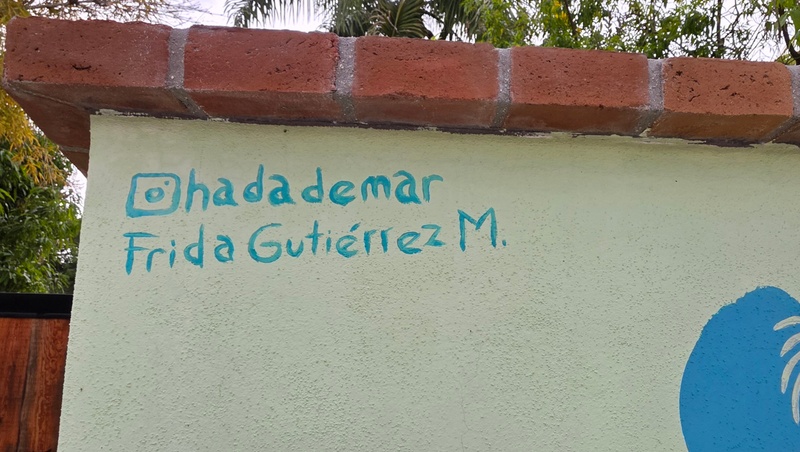 hadademar
Frida Gutiérrez M.